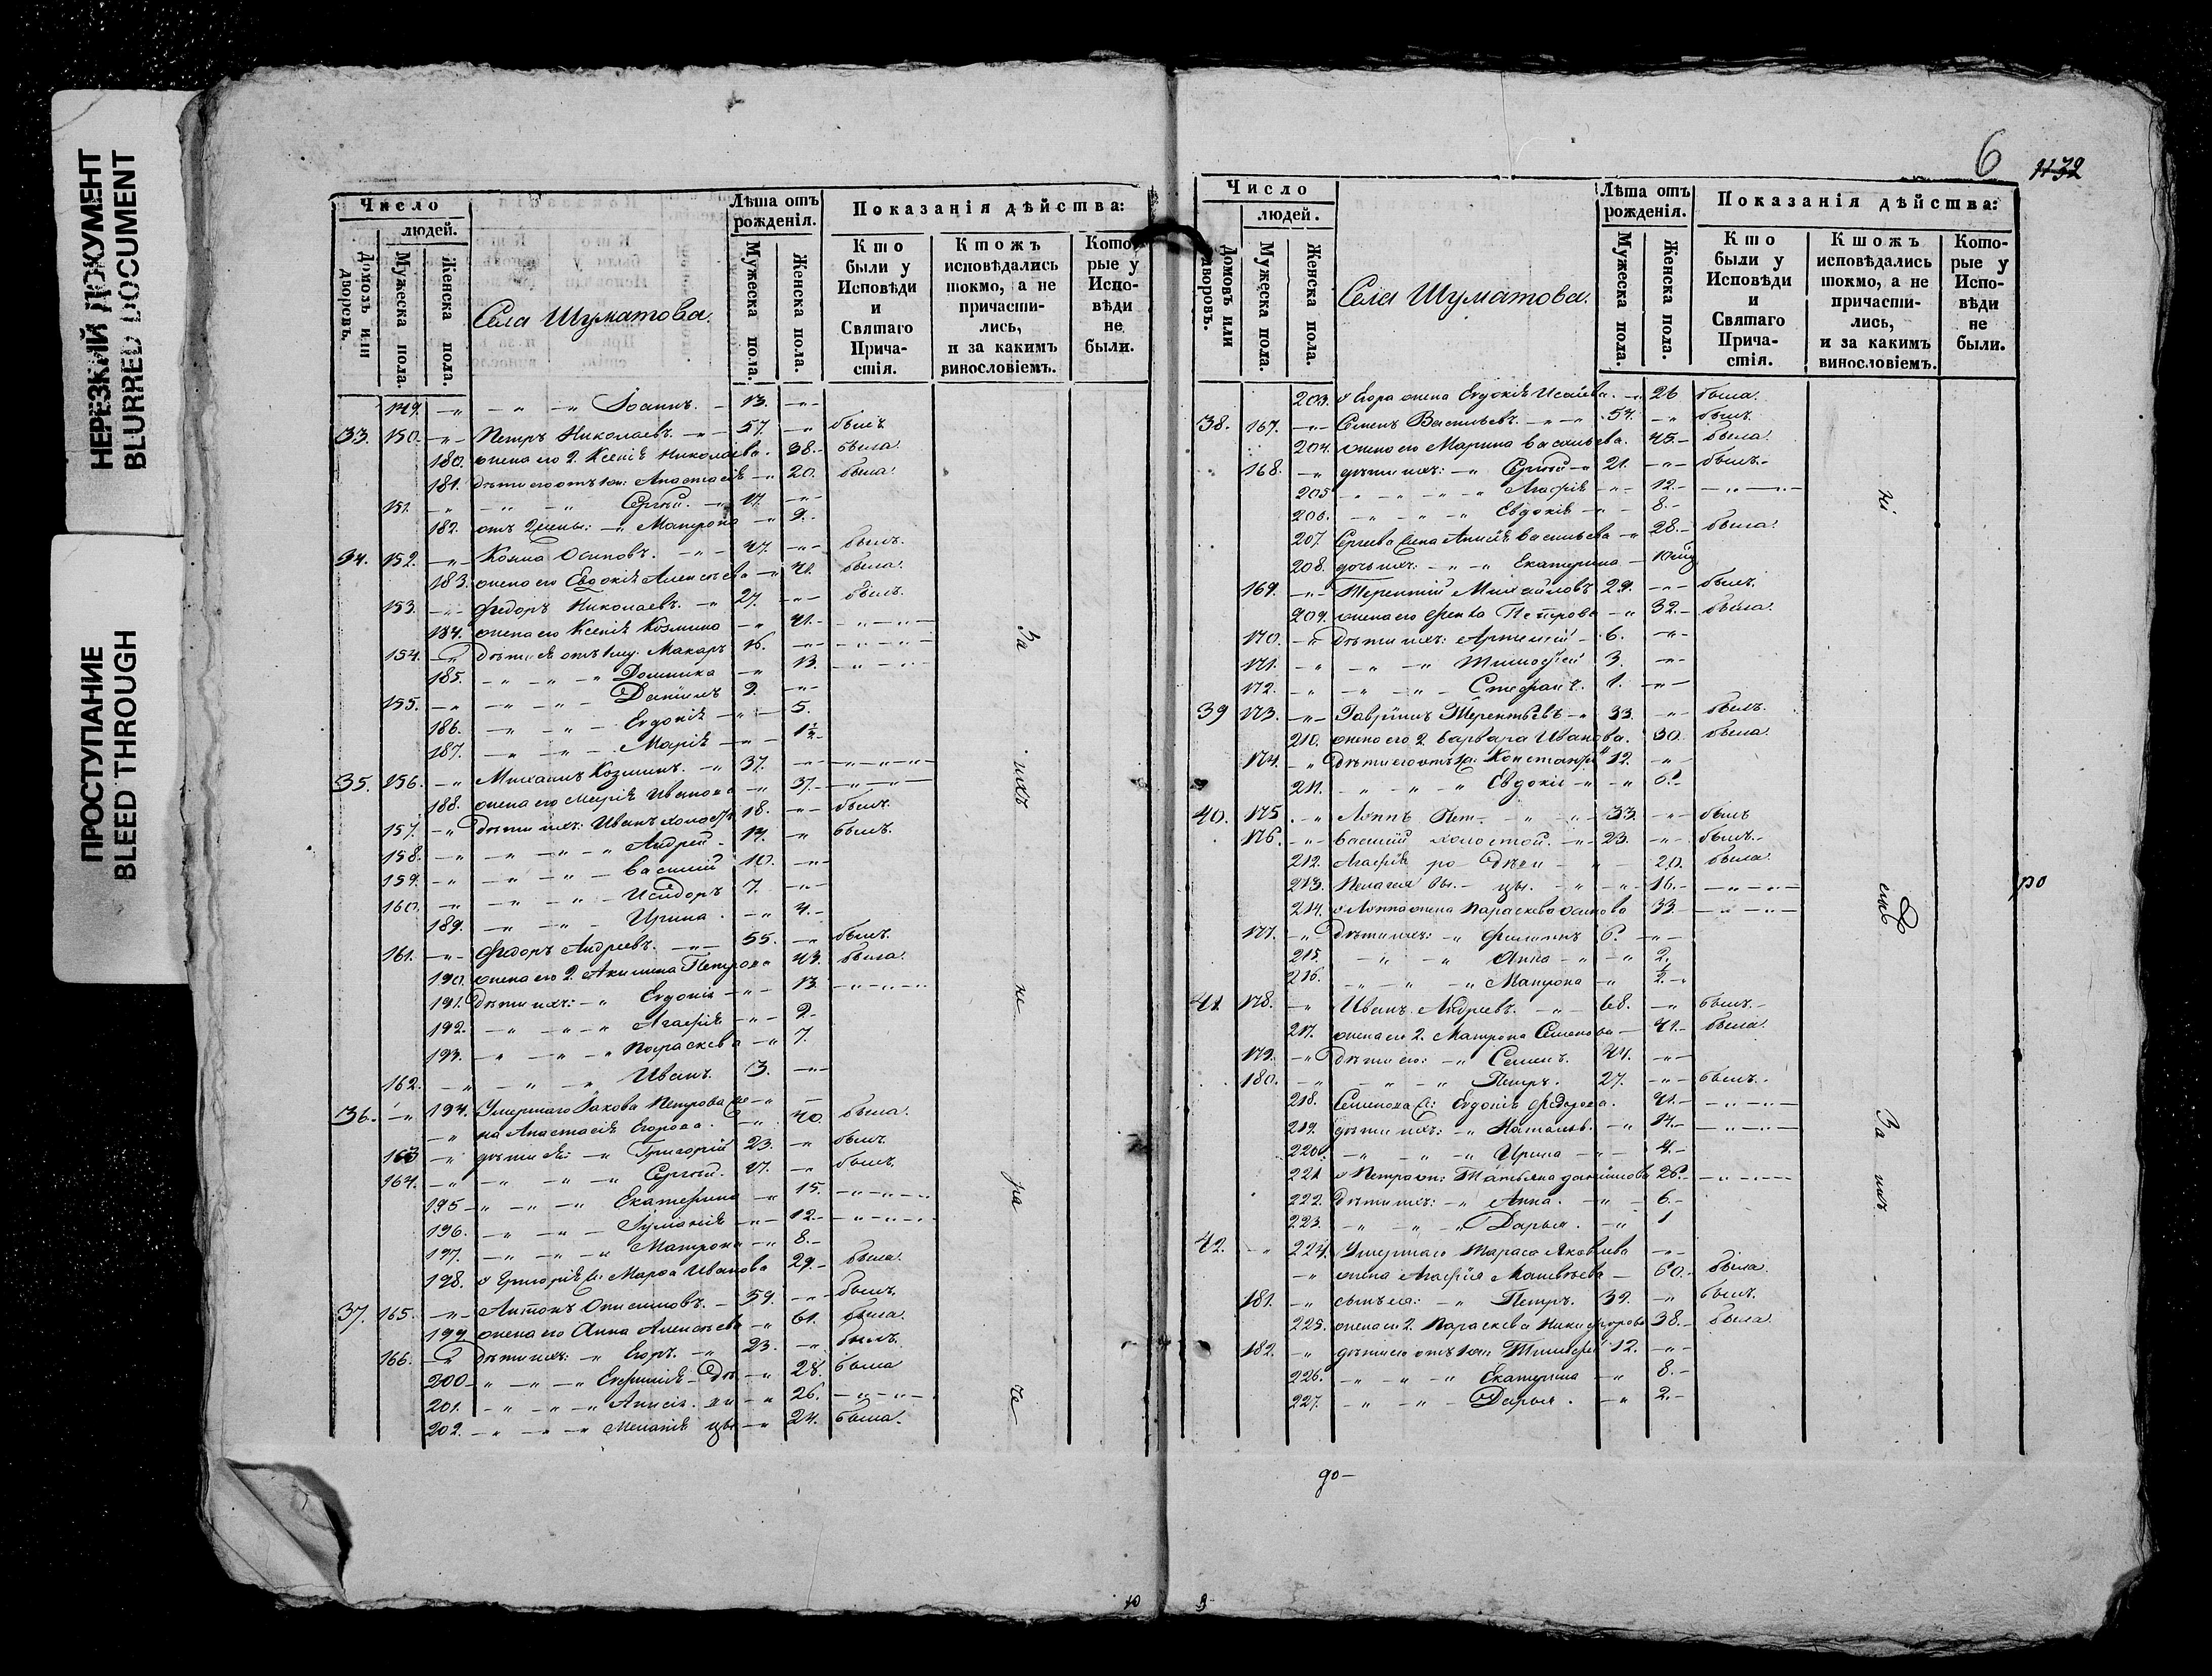 НЕРЕЗКИЙ ДОКУМЕНТ
BLURRED DOCUMENT
ПРОСТУПАНИЕ
BLEED THROUGH
Число
людей.
Домовъ или дворовъ.
Мужеска пола.
Женска пола.
Села Шуматова.
Лѣта отъ рожденія.
Мужеска пола.
Женска пола.
Показанія дѣйства:
Кто были у Исповѣди и Святаго Причастія.
Ктожъ исповѣдались токмо, а не причастились, и за какимъ винословіемъ.
Которые у Исповѣди не были.
149. Іоаннъ. 13.
33. 150. Петръ Николаевъ. 57. былъ
180. жена его 2. Ксенія Николаева. 38. была
181. дѣти его отъ 1 ж: Анастасія 20. была
151. Сергѣй. 14.
182. отъ 2 жены: Матрона 9.
34. 152. Козма Осиповъ. 47. былъ.
183. жена его Евдокія Алексѣева 41. была.
153. Федоръ Николаевъ. 27. былъ
184. жена его Ксенія Козмина 41.
154. дѣти ея отъ 1 му: Макаръ 16.
185. Домника 13.
155. Даніилъ 9.
186. Евдокія 5.
187. Марія 1½
35. 156. Михаилъ Козминъ. 37.
188. жена его Марія Иванова 37.
157. дѣти ихъ: Иванъ холост 18. былъ.
158. Андрей 14. былъ.
159. Василій 10.
160. Исидоръ 7.
189. Ирина 4.
161. Федоръ Андреевъ. 55. былъ.
190. жена его 2. Акилина Петрова 43. была
191. дѣти ихъ: Евдокія 13.
192. Агафія 9.
193. Параскева 7.
162. Иванъ 3.
36. 194. Умершаго Іакова Петрова же
на Анастасія Егорова. 40. была.
163 дѣти ея: Григорій 23. былъ
164. Сергѣй. 17. былъ.
195 Екатерина 15.
196. Іуліанія 12.
197. Матрона 8.
198. у Григорія ж: Марфа Иванова 29. была.
37. 165. Антонъ Онисимовъ. 59. былъ.
199 жена его Анна Алексѣева 61. была.
166. дѣти ихъ: Егоръ 23. былъ.
200 Евфимія Дѣ 28. была
201. Анисія ви 26.
202. Меланія цы 24. была.
За ихъ не ра че
6
Число
людей.
Домовъ или дворовъ.
Мужеска пола.
Женска пола.
Села Шуматова.
Лѣта отъ рожденія.
Мужеска пола.
Женска пола.
Показанія дѣйства:
Кто были у Исповѣди и Святаго Причастія.
Ктожъ исповѣдались токмо, а не причастились, и за какимъ винословіемъ.
Которые у Исповѣди не были.
203. у Егора жена Евдокія Исаева. 26 была.
38. 167. Семенъ Васильевъ. 54. былъ.
204. жена его Марина Васильева. 45. была.
168. дѣти ихъ: Сергѣй 21. былъ.
205 Агафія 12.
206. Евдокія 8.
207. Сергѣева жена Анисія Васильева 28. была.
208. дочь ихъ: Екатерина
169. Терентій Михайловъ 29. былъ.
209. жена его Фекла Петрова 32. была.
170. дѣти ихъ: Артемій 6.
171. Тимофей 3.
172. Стефанъ. 1.
39 173. Гавріилъ Терентьевъ 33. былъ.
210. жена его 2. Варвара Иванова. 30. была
174. дѣти его отъ 1 ж: 12.
211. Евдокія 6.
40. 175. Лоппъ 33. былъ
176. Василій холостой. 23. былъ.
212. Агафія 20. была.
213. Пелагея 16.
214. у Лоппа жена Параскева Осипова 33.
177. дѣти ихъ: Филиппъ 6.
215. Анна 2.
216. Матрона ½
41 178. Иванъ Андреевъ. 68. былъ.
217. жена его 2. Матрона Семенова 41. была.
179. дѣти его: Семенъ. 44.
180. Петръ. 27. былъ.
218. Семенова ж: Евдокія Федорова. 41.
219. дѣти ихъ: Наталья 14.
220. Ирина 4.
221 у Петра ж: Татьяна Даніилова 26.
222. дѣти ихъ: Анна. 6.
223. Дарья. 1
42. 224. Умершаго Тараса Яковлева
жена Агафія Матвѣева 60. была.
181. сынъ ея: Петръ. 39. былъ.
225. жена его 2. Параскева Никифорова 38. была
182. дѣти его отъ 1 ж: Тимофей 12.
226. Екатерина 8.
227. Дарья. 2.
ні емъ За ихъ
ро
до-